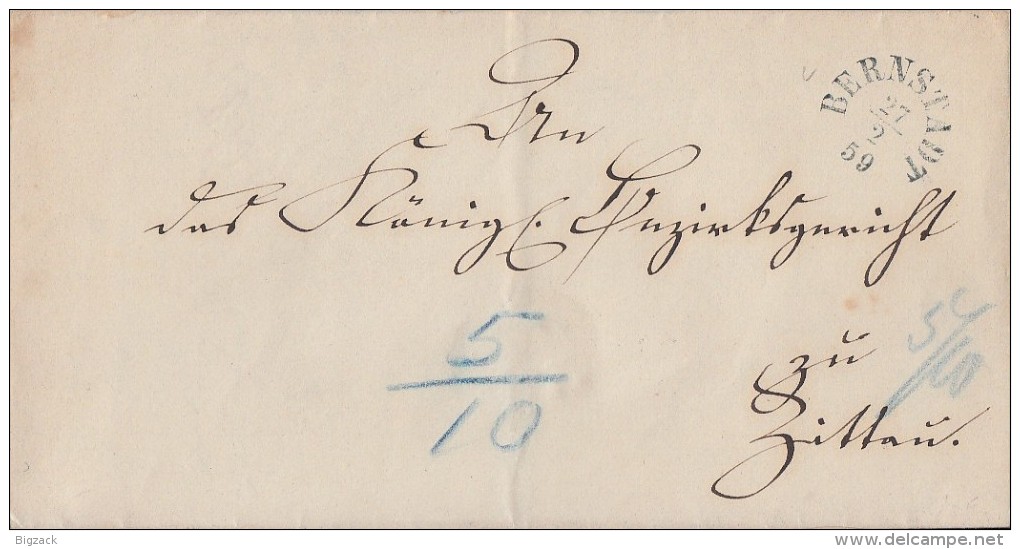 BERNSTADT
27/2
59
An
das Königl. Bezirksgericht
5/10
5/10
zu
Zittau.
Bigzack
delcampe.net